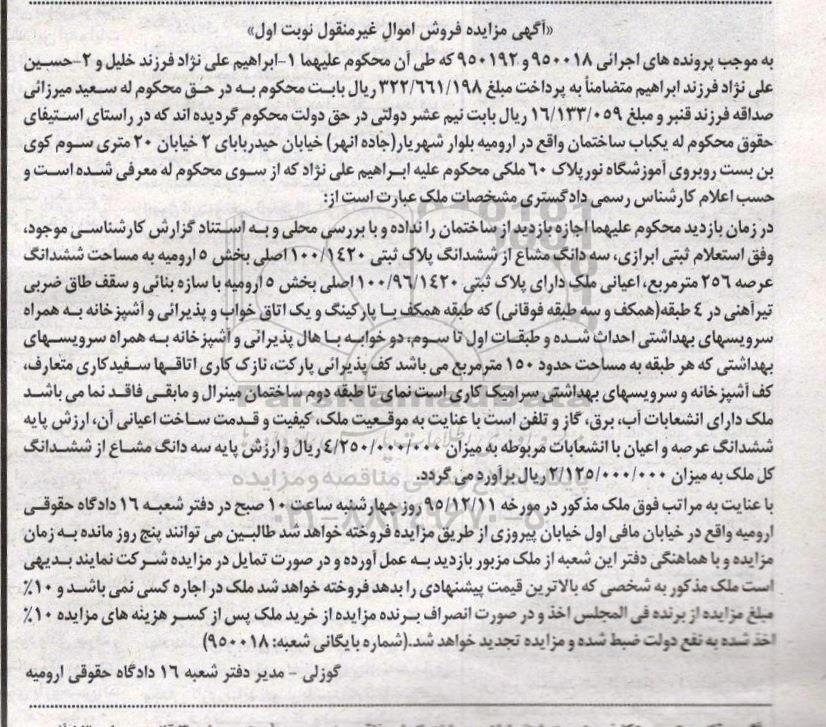 «آگهی مزایده فروش اموال غیرمنقول نوبت اول»
به موجب پرونده های اجرائی ۹۵۰۰۱۸ و ۹۵۰۱۹۲ که طی آن محکوم علیهما ۱-ابراهیم علی نژاد فرزند خلیل و ۲-حسین
علی نژاد فرزند ابراهیم متضامناً به پرداخت مبلغ ۳۲۲/۶۶۱/۱۹۸ ریال بابت محکوم به در حق محکوم له سعید میرزائی
صداقه فرزند قنبر و مبلغ ۱۶/۱۳۳/۰۵۹ ریال بابت نیم عشر دولتی در حق دولت محکوم گردیده اند که در راستای استیفای
حقوق محکوم له یکباب ساختمان واقع در ارومیه بلوار شهریار(جاده انهر) خیابان حیدربابای ۲ خیابان ۲۰ متری سوم کوی
بن بست روبروی آموزشگاه نور پلاک ۶۰ ملکی محکوم علیه ابراهیم علی نژاد که از سوی محکوم له معرفی شده است و
حسب اعلام کارشناس رسمی دادگستری مشخصات ملک عبارت است از:
در زمان بازدید محکوم علیهما اجازه بازدید از ساختمان را نداده و با بررسی محلی و به استناد گزارش کارشناسی موجود،
وفق استعلام ثبتی ابرازی، سه دانگ مشاع از ششدانگ پلاک ثبتی ۱۰۰/۱۴۲۰ اصلی بخش ۵ ارومیه به مساحت ششدانگ
عرصه ۲۵۶ مترمربع، اعیانی ملک دارای پلاک ثبتی ۱۰۰/۹۶/۱۴۲۰ اصلی بخش ۵ ارومیه با سازه بنائی و سقف طاق ضربی
تیرآهنی در ۴ طبقه(همکف و سه طبقه فوقانی) که طبقه همکف با پارکینگ و یک اتاق خواب و پذیرائی و آشپزخانه به همراه
سرویسهای بهداشتی احداث شده و طبقات اول تا سوم، دو خوابه با هال پذیرائی و آشپزخانه به همراه سرویسهای
بهداشتی که هر طبقه به مساحت حدود ۱۵۰ مترمربع می باشد کف پذیرائی پارکت، نازک کاری اتاقها سفیدکاری متعارف،
کف آشپزخانه و سرویسهای بهداشتی سرامیک کاری است نمای تا طبقه دوم ساختمان مینرال و مابقی فاقد نما می باشد
ملک دارای انشعابات آب، برق، گاز و تلفن است با عنایت به موقعیت ملک، کیفیت و قدمت ساخت اعیانی آن، ارزش پایه
ششدانگ عرصه و اعیان با انشعابات مربوطه به میزان ۴/۲۵۰/۰۰۰/۰۰۰ ریال و ارزش پایه سه دانگ مشاع از ششدانگ
کل ملک به میزان ۲/۱۲۵/۰۰۰/۰۰۰ ریال برآورد می گردد.
با عنایت به مراتب فوق ملک مذکور در مورخه ۹۵/۱۲/۱۱ روز چهارشنبه ساعت ۱۰ صبح در دفتر شعبه ۱۶ دادگاه حقوقی
ارومیه واقع در خیابان مافی اول خیابان پیروزی از طریق مزایده فروخته خواهد شد طالبین می توانند پنج روز مانده به زمان
مزایده و با هماهنگی دفتر این شعبه از ملک مزبور بازدید به عمل آورده و در صورت تمایل در مزایده شرکت نمایند بدیهی
است ملک مذکور به شخصی که بالاترین قیمت پیشنهادی را بدهد فروخته خواهد شد ملک در اجاره کسی نمی باشد و ۱۰٪
مبلغ مزایده از برنده فی المجلس اخذ و در صورت انصراف برنده مزایده از خرید ملک پس از کسر هزینه های مزایده ۱۰٪
اخذ شده به نفع دولت ضبط شده و مزایده تجدید خواهد شد.(شماره بایگانی شعبه: ۹۵۰۰۱۸)
گوزلی - مدیر دفتر شعبه ۱۶ دادگاه حقوقی ارومیه